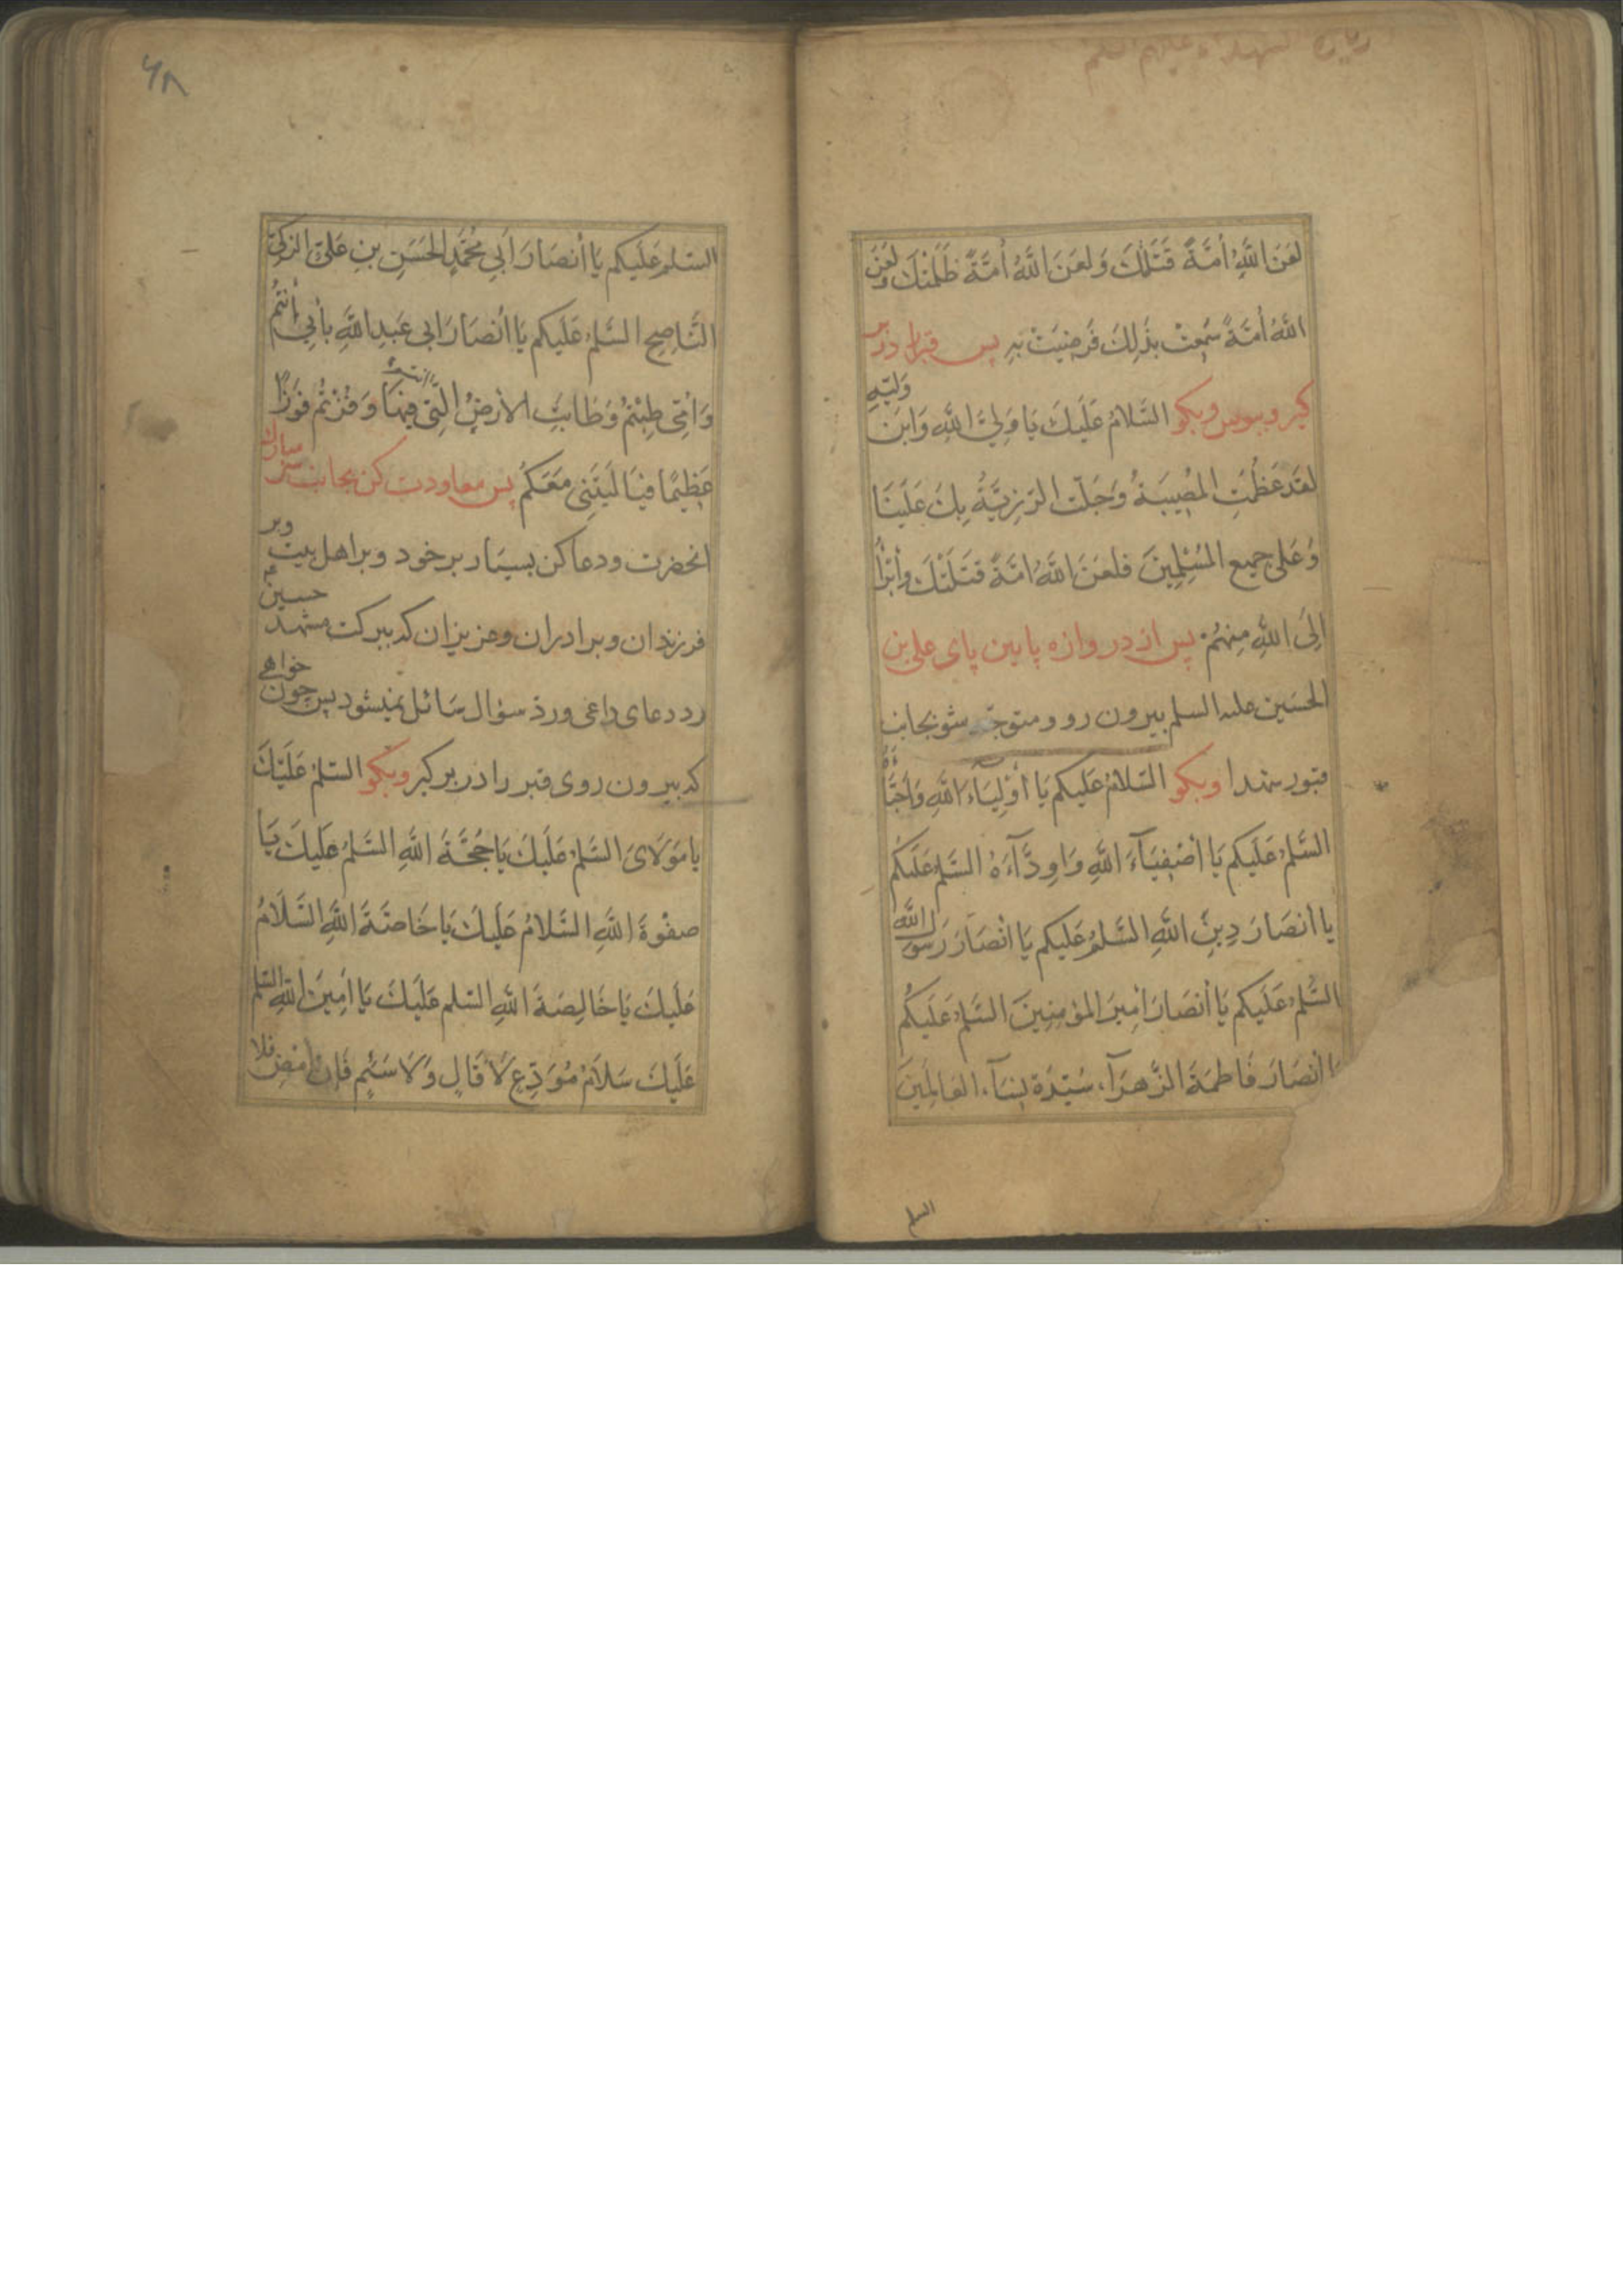 زیارت شهداء علیهم السلم
لَعَنَ اللهُ أُمَّةً قَتَلَتْكَ وَلَعَنَ اللهُ أُمَّةً ظَلَمَتْكَ وَلَعَنَ
اللهُ أُمَّةً سَمِعَتْ بِذٰلِكَ فَرَضِيَتْ بِهِ پس قبر را در بر
كیر و ببوس و بكو السَّلَامُ عَلَيْكَ يَا وَلِيَّ اللهِ وَابْنَ وَلِيِّهِ
لَقَدْ عَظُمَتِ الْمُصِيبَةُ وَجَلَّتِ الرَّزِيَّةُ بِكَ عَلَيْنَا
وَعَلَى جَمِيعِ الْمُسْلِمِينَ فَلَعَنَ اللهُ اُمَّةً قَتَلَتْكَ وَأَبْرَأُ
اِلَى اللهِ مِنْهُمْ پس از دروازه پایین پای علی بن
الحسین علیه السلم بیرون رو و متوجه شو بجانب
قبور شهدا و بكو السَّلَامُ عَلَيْكُمْ يَا أَوْلِيَاءَ اللهِ وَأَحِبَّاءَهُ
السَّلٰمُ عَلَيْكُمْ يَا أَصْفِيَآءَ اللهِ وَاَوِدَّآءَهُ السَّلٰمُ عَلَيْكُمْ
يَا أَنْصَارَ دِينِ اللهِ السَّلٰمُ عَلَيْكُمْ يَا اَنْصَارَ رَسُولِ اللهِ
السَّلٰمُ عَلَيْكُمْ يَا أَنْصَارَ أَمِيرِ الْمُؤْمِنِينَ السَّلٰمُ عَلَيْكُمْ
يا أَنْصَارَ فَاطِمَةَ الزَّهْرَآءِ سَيِّدَةِ نِسَآءِ الْعَالَمِينَ
السلم
۶۸
السَّلٰمُ عَلَيْكُمْ يَا أَنْصَارَ اَبِي مُحَمَّدٍ الْحَسَنِ بْنِ عَلِيٍّ الزَّكِيِّ
النَّاصِحِ السَّلٰمُ عَلَيْكُمْ يَا اَنْصَارَ اَبِي عَبْدِ اللهِ بِأَبِي أَنْتُمْ
وَاُمِّي طِبْتُمْ وَطَابَتِ الْأَرْضُ الَّتِي فِيهَا وَفُزْتُمْ فَوْزًا
عَظِيمًا فَيَا لَيْتَنِي مَعَكُمْ پس معاودت كن بجانب سر مبارك
انحضرت و دعا كن بسیار بر خود و بر اهل بیت و بر
فرزندان و برادران و عزیزان كه ببركت مشهد حسین
رد دعای داعی و رد سؤال سائل نمیشود پس چون خواهی
كه بیرون روی قبر را در بر كیر و بكو السَّلٰمُ عَلَيْكَ
يَا مَوْلَايَ السَّلٰمُ عَلَيْكَ يَا حُجَّةَ اللهِ السَّلٰمُ عَلَيْكَ يَا
صَفْوَةَ اللهِ السَّلَامُ عَلَيْكَ يَا خَاصَّةَ اللهِ السَّلَامُ
عَلَيْكَ يَا خَالِصَةَ اللهِ السَّلٰمُ عَلَيْكَ يَا اَمِينَ اللهِ السَّلٰمُ
عَلَيْكَ سَلَامُ مُوَدِّعٍ لَا قَالٍ وَلَا سَئِمٍ فَإِنْ اَمْضِ فَلَا